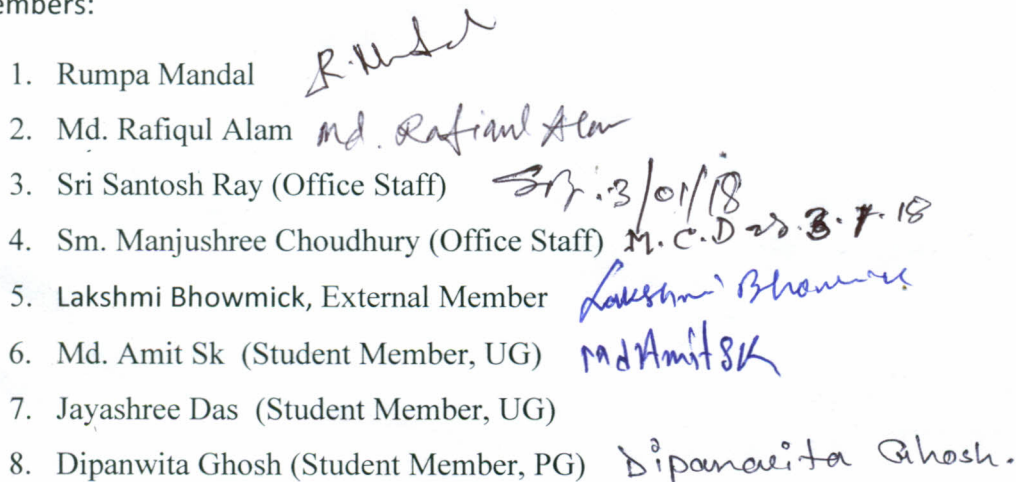 embers:
1. Rumpa Mandal R. Mandal
2. Md. Rafiqul Alam Md. Rafiqul Alam
3. Sri Santosh Ray (Office Staff) 3/01/18
4. Sm. Manjushree Choudhury (Office Staff) M. C. D 3. 1. 18
5. Lakshmi Bhowmick, External Member Lakshmi Bhowmick
6. Md. Amit Sk (Student Member, UG) Md Amit SK
7. Jayashree Das (Student Member, UG)
8. Dipanwita Ghosh (Student Member, PG) Dipanwita Ghosh.